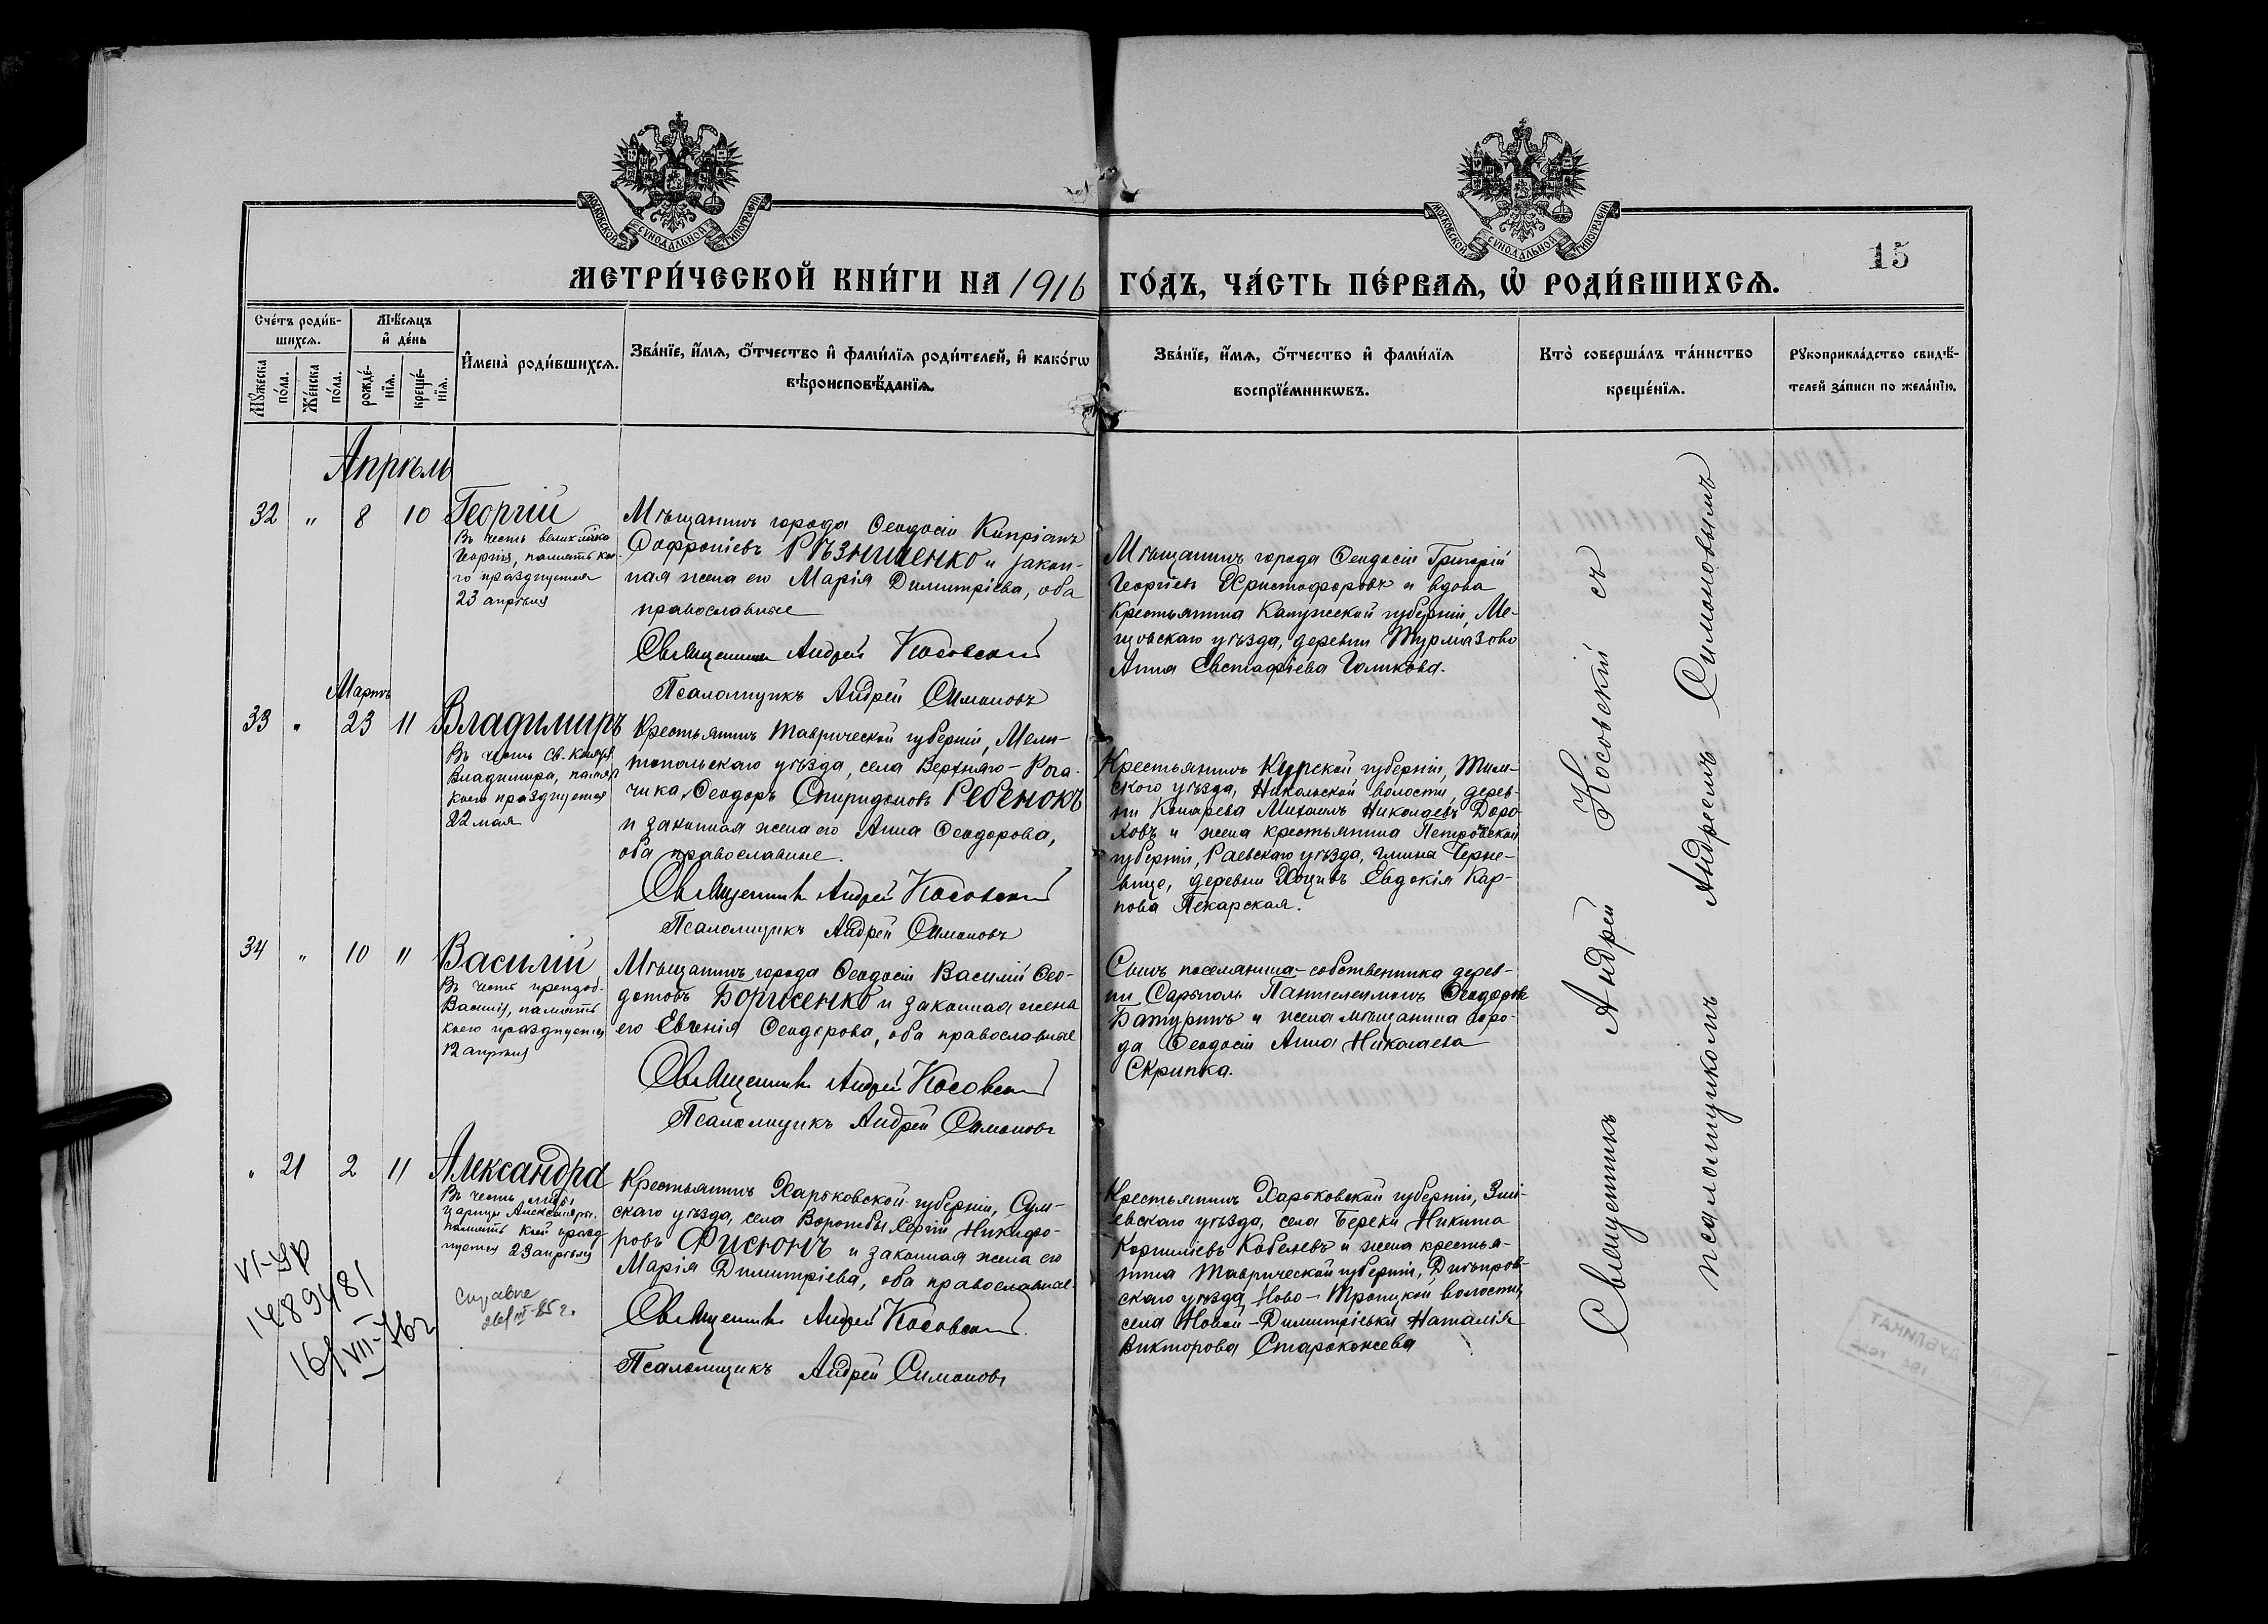 МОСКОВСКОЙ СѴНОДАЛЬНОЙ ТИПОГРАФІИ
МОСКОВСКОЙ СѴНОДАЛЬНОЙ ТИПОГРАФІИ
15
МЕТРИ́ЧЕСКОЙ КНИ́ГИ НА 1916 ГО́ДЪ, ЧА́СТЬ ПЕ́РВАѦ, Ѡ҆ РОДИ́ВШИХСѦ.
Сче́тъ роди́в-
шихсѧ.
Мꙋ́жеска по́ла.
Же́нска по́ла.
Мѣ́сѧцъ
и҆ де́нь
рожде́-
нїѧ.
креще́-
нїѧ.
И҆мена̀ роди́вшихсѧ.
Зва́нїе, и҆́мѧ, ѻ҆́тчество и҆ фами́лїѧ роди́телей, и҆ како́гѡ
вѣроисповѣ́данїѧ.
Зва́нїе, и҆́мѧ, ѻ҆́тчество и҆ фами́лїѧ
воспрїе́мникѡвъ.
Кто̀ соверша́лъ та́инство
креще́нїѧ.
Рꙋкоприкла́дство свидѣ́-
телей за́писи по жела́нїю.
Апрѣль
32 " 8 10 Георгій
Въ честь великомуч.
Георгія, память кое-
го празднуется
23 апрѣля
Мѣщанинъ города Ѳеодосіи Кипріанъ
Софроніевъ Рѣзниченко и закон-
ная жена его Марія Димитріева, оба
православные
Священникъ Андрей Косовскій
Псаломщикъ Андрей Симоновъ
Мѣщанинъ города Ѳеодосіи Григорій
Георгіевъ Христофоровъ и вдова
крестьянина Калужской губерніи, Ме-
щовскаго уѣзда, деревни
Анна Евстафіева Голикова.
Мартъ
33 " 23 11 Владиміръ
Въ честь св. Князя
Владиміра, память
коего празднуется
22 мая
Крестьянинъ Таврической губерніи, Мели-
топольскаго уѣзда, села Верхняго-Рога-
чика, Ѳеодоръ Спиридоновъ Ребенокъ
и законная жена его Анна Ѳеодорова,
оба православные.
Священникъ Андрей Косовскій
Псаломщикъ Андрей Симоновъ
Крестьянинъ Курской губерніи, Тим-
скаго уѣзда, Никольской волости, дерев-
ни Комарева Михаилъ Николаевъ Доро-
ховъ и жена крестьянина Петровской
губерніи, Раевскаго уѣзда, гмина Черне-
вице, деревни Евдокія Кар-
пова Пекарская.
34 " 10 " Василій
Въ честь преподоб.
Василія, память
коего празднуется
12 апрѣля
Мѣщанинъ города Ѳеодосіи Василій Ѳео-
дотовъ Борисенко и законная жена
его Евгенія Ѳеодорова, оба православные
Священникъ Андрей Косовскій
Псаломщикъ Андрей Симоновъ
Сынъ поселянина-собственника дерев-
ни Сарыголь Пантелеимонъ Ѳеодоровъ
Батуринъ и жена мѣщанина горо-
да Ѳеодосіи Анна Николаева
Скрипка.
" 21 2 11 Александра
Въ честь мцы
царицы Александры,
память коей празд-
нуется 23 апрѣля
Крестьянинъ Харьковской губерніи, Сум-
скаго уѣзда, села Ворожбы Сергій Никифо-
ровъ Фисюнъ и законная жена его
Марія Димитріева, оба православные
Священникъ Андрей Косовскій
Псаломщикъ Андрей Симоновъ
Крестьянинъ Харьковской губерніи, Змі-
евскаго уѣзда, села Береки Никита
Корниліевъ Кобелевъ и жена крестья-
нина Таврической губерніи, Днѣпров-
скаго уѣзда, Ново-Троицкой волости,
села Новой-Димитріевки Наталія
Викторова Старокожева
Священникъ Андрей Косовскій съ
псаломщикомъ Андреемъ Симоновымъ
VI-УР
1489481
16/VII-76г
ДУБЛИКАТ